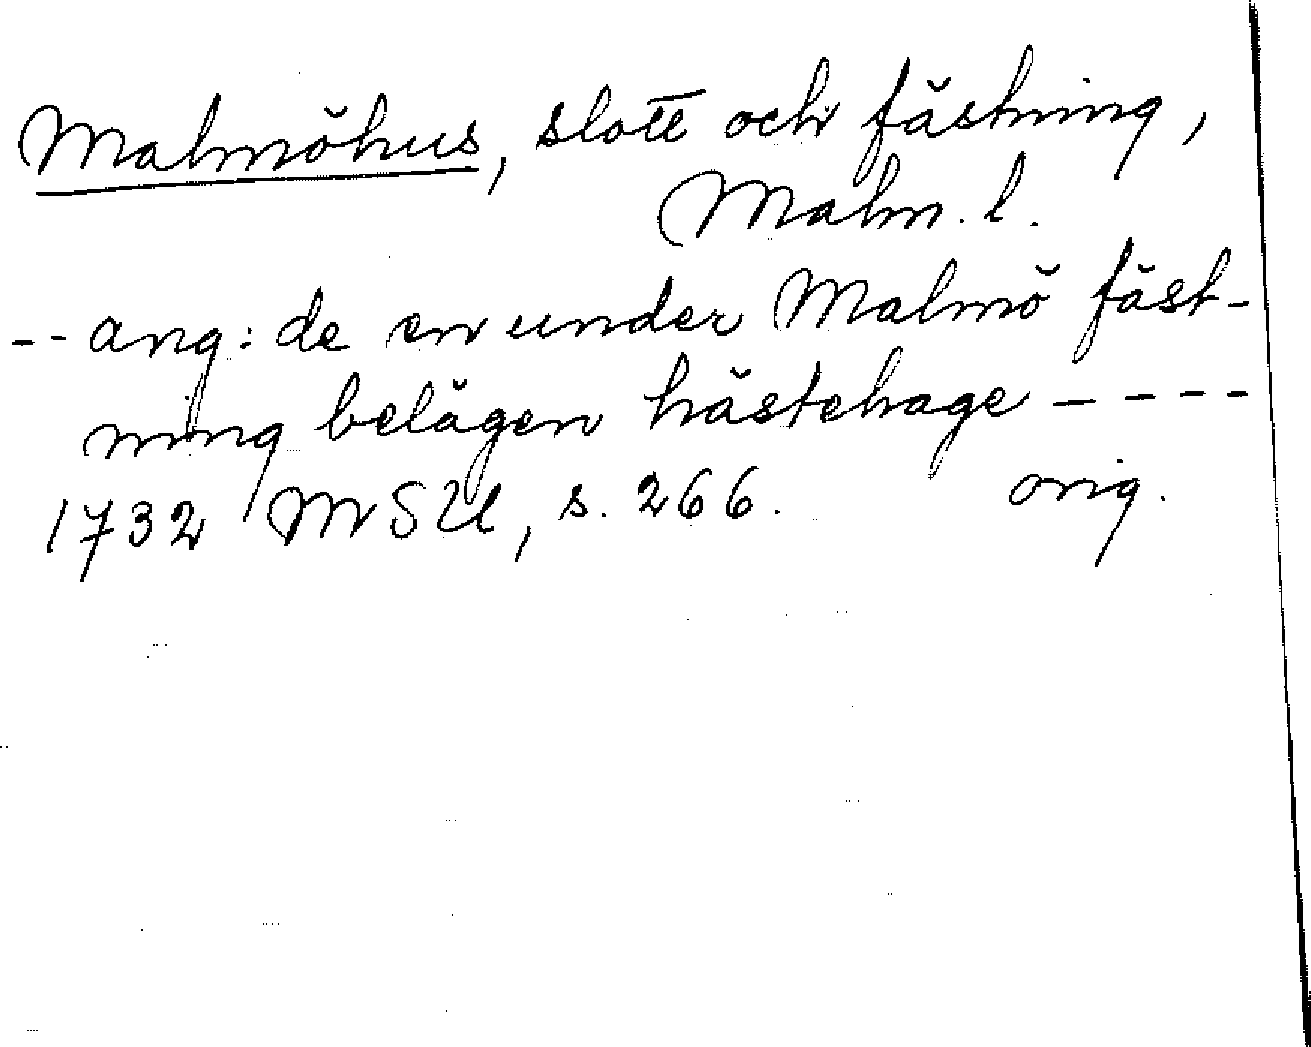 Malmöhus, slott och fästning,
Malm. l.
-- ang: de en under Malmö fäst-
ning belägen hästehage ----
1732 MSU, s. 266. orig.